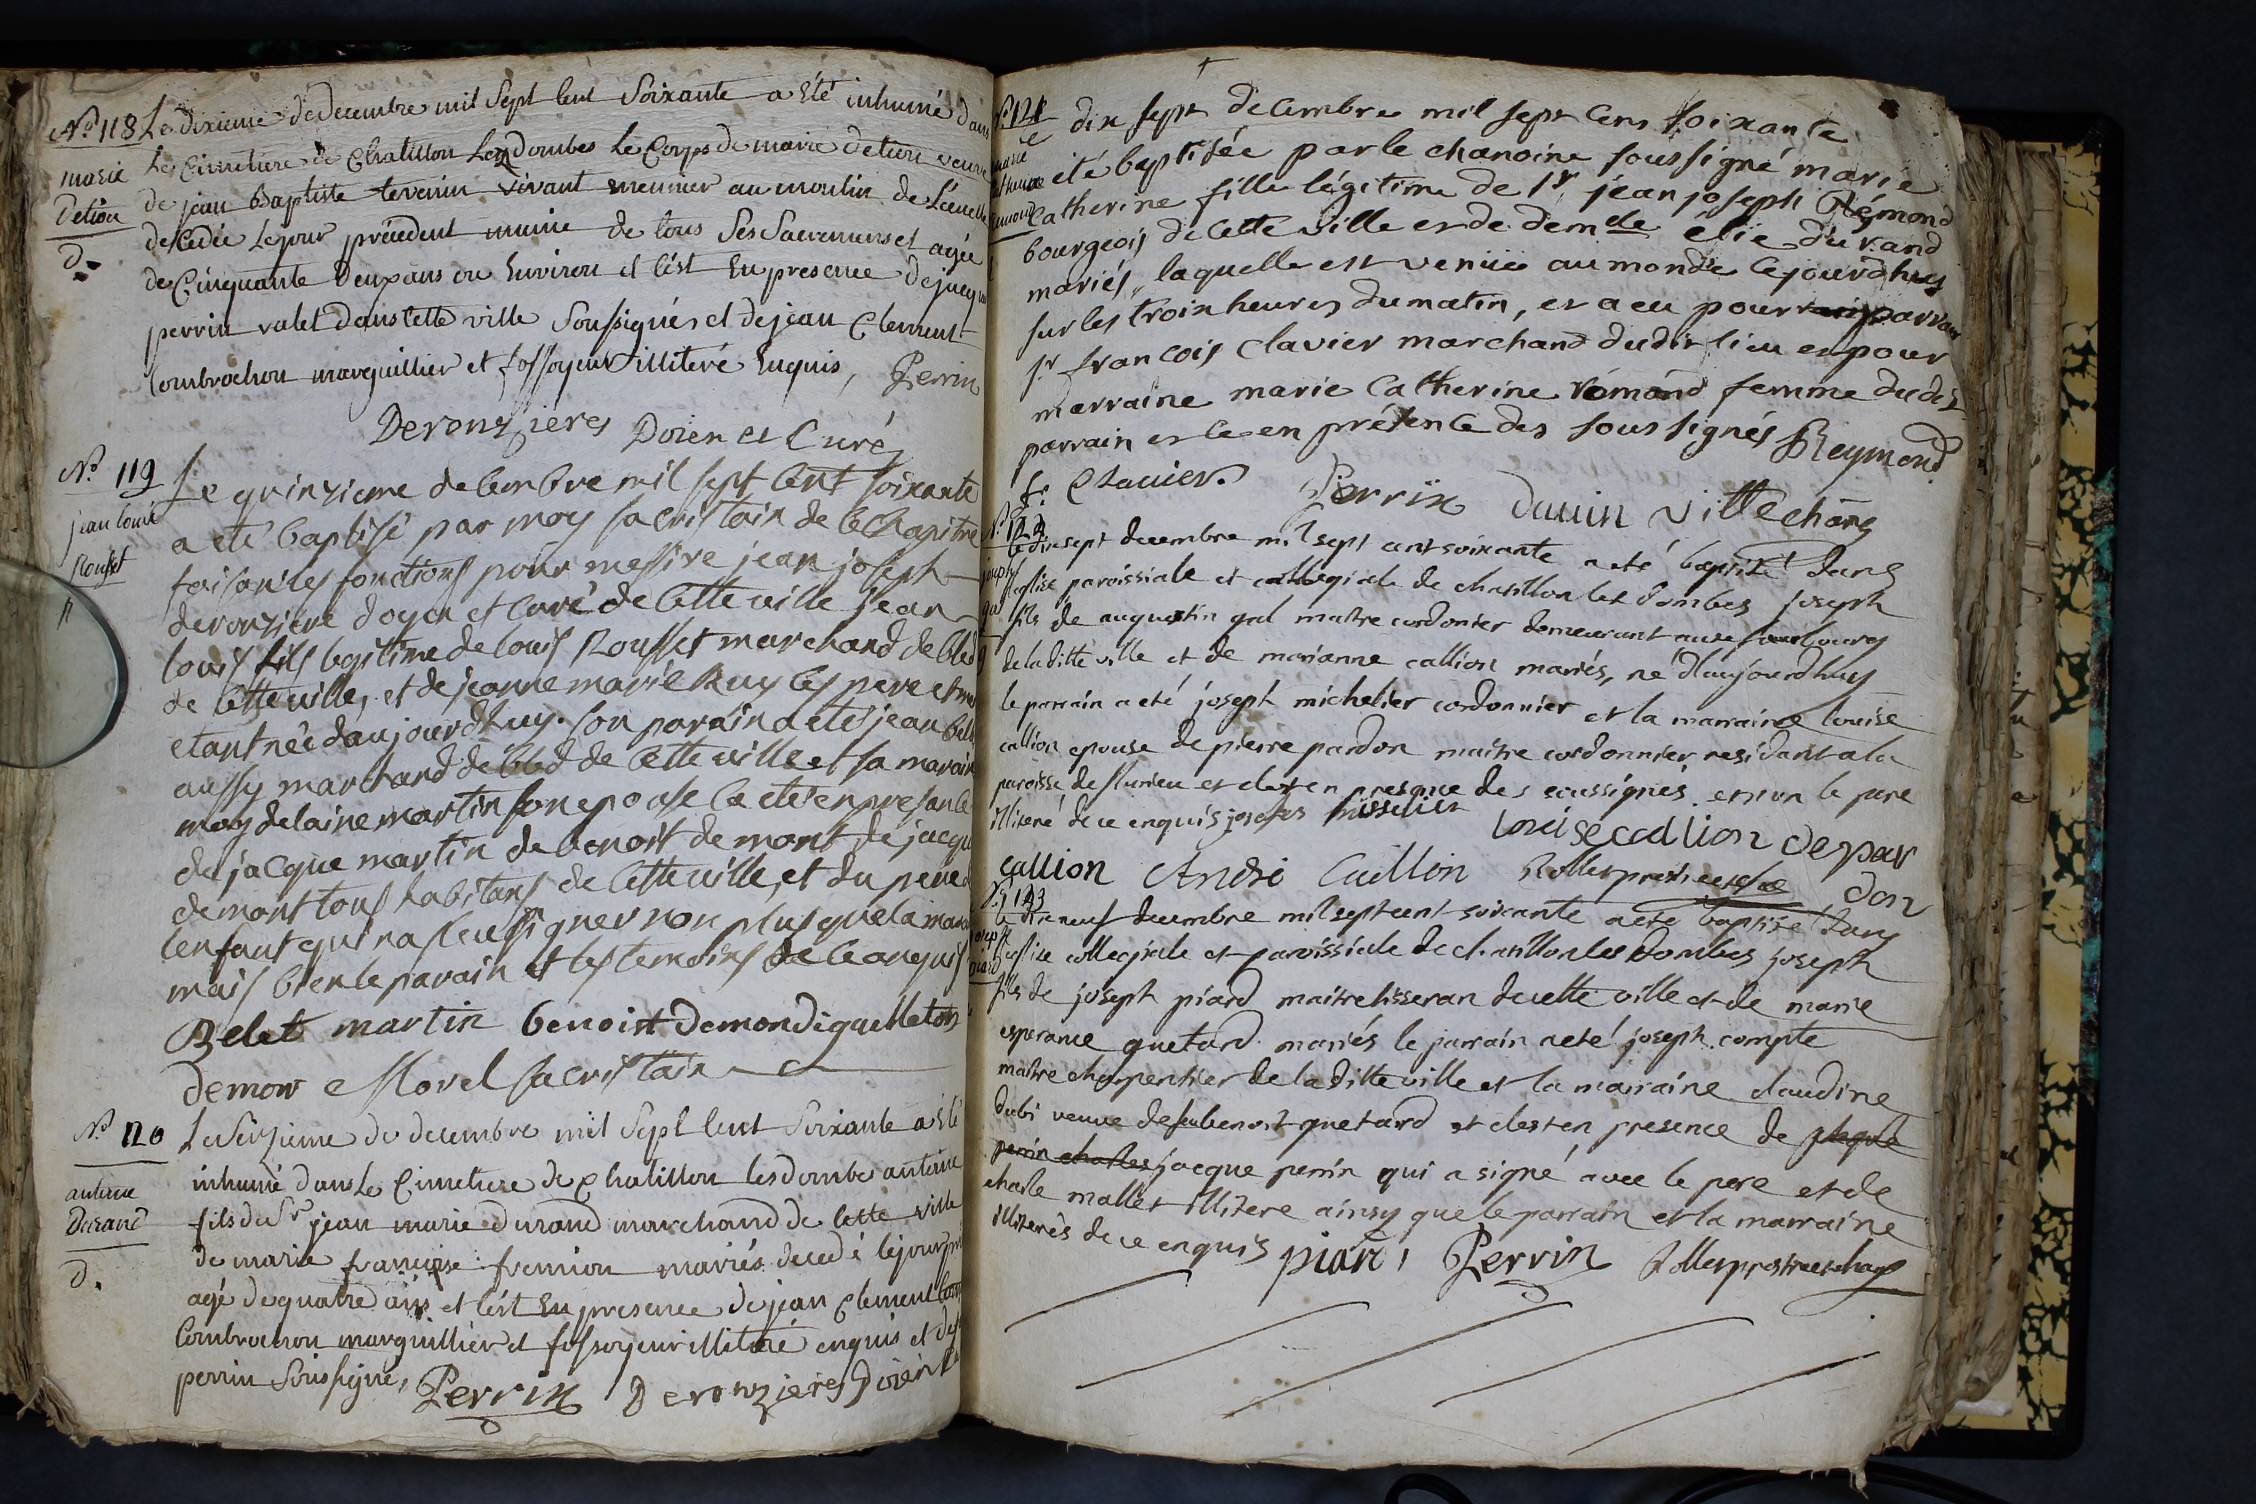 N.º 118 Le dixieme de decembre mil Sept Cent Soixante a Eté inhumé dans
marie Le Cimetiere de Chatillon Les dombes Le Corps de marie detion veuve
detion de jean Baptiste tevenin vivant meunier au moulin de
d. decedée Le jour précedent munie de tous Ses Sacremens et agée
de Cinquante Deux ans ou Environ et C'est En presence de jacque
perrin valet dans Cette ville Soussignés et de jean Clement
Combrochon marguillier et fossoyeur illiteré Enquis, Perrin
Deronzieres Doien et Curé
N.º 119 Le quinzieme decembre mil sept cent soixante
jean louis a eté baptisé par moy sacristain de ce chapitre
Rousset faisant les fonctions pour messire jean joseph
deronziere doyen et curé de cette ville jean
louis fils legitime de louis Rousset marchand de bled
de cette ville, et de jeanne marie Ruy ses pere et mere
etant née d'aujourdhuy. son parain a eté jean belet
aussy marchand de bled de cette ville et sa maraine
magdelaine martin son epouse ce eté en presance
de jacque martin de benoist demont de jacque
demont tous habitans de cette ville, et du pere de
lenfant qui na sceu signer non plus que la maraine
mais bien le parain et les temoins de ce enquis
Belet martin benoist demondiguelleton
demon Morel sacristain
N.º 120 Le Seizieme de decembre mil Sept Cent Soixante a Eté
inhumé dans Le Cimetiere de Chatillon les dombe antoine
antoine fils du Sr jean marie durand marchand de Cette ville
Durand de marie françoise fremion mariés decedé le jour
d. agé de quatre ans et C'est En presence de jean Clement
Combrochon marguillier et fossoyeur illiteré enquis et de
perrin Soussigné, Perrin Deronzieres Doien
N.º 121 Le dix sept decembre mil sept cens soixante
marie été baptisée par le chanoine soussigné marie
catherine catherine fille légitime de Sr jean joseph Rémond
Remond bourgeois de cette ville et de demlle élie durand
mariés, laquelle est venüe au monde cejourdhuy
sur les trois heures du matin, et a eu pour parrain
sr françois Clavier marchand dudit lieu et pour
marraine marie Catherine rémond femme dudit
parrain et ce en présence des soussignés Reymond
f. Clavier. Perrin dauin Villechâng
N.º 122 le dix sept decembre mil sept cent soixante a eté baptisé dans
joseph l'eglise paroissiale et collegiale de chatillon les dombes joseph
gal fils de augustin gal maitre cordonier demeurant au fauxbourg
de la ditte ville et de marianne callion mariés, né d'aujourdhuy
le parrain a eté josept michelier cordonnier et la marraine louise
callion epouse de pierre pardon maitre cordonnier residant a la
paroisse de flurieu et c'est en presence des soussignés et non le pere
illiteré de ce enquis josefes misselier louise callion depar
callion André Caillon Rollet prestre et cha don
N.º 123 le dix neuf decembre mil sept cent soixante a eté baptisé dans
joseph l'eglise collegiale et paroissiale de chatillon les dombes joseph
piard fils de joseph piard maitre tisseran de cette ville et de marie
esperance quetard mariés le parrain a eté joseph compte
maitre charpentier de la ditte ville et la marraine claudine
dubi veuve de feu benoit quetard et c'est en presence de jacque
perrin charles jacque perrin qui a signé avec le pere et de
charle mallet illitere ainsy que le parrain et la marraine
illiterés de ce enquis piard Perrin Rollet prestre et chan